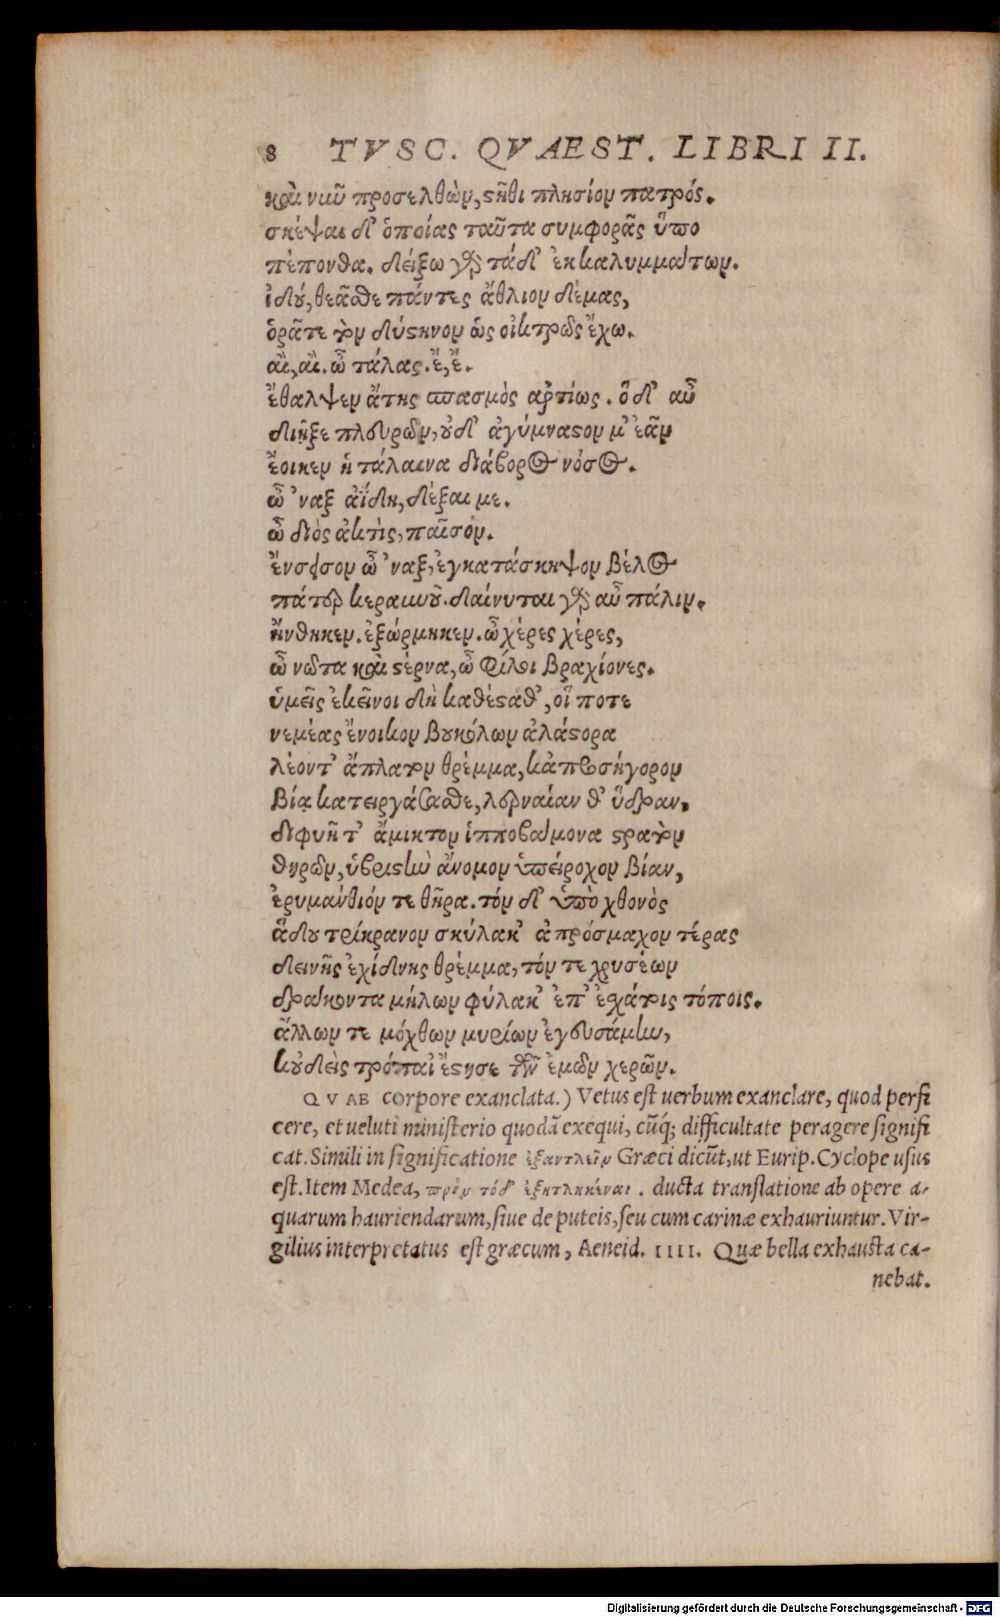 8 TVSC. QVAEST. LIBRI II.
καὶ νιῦ προσελθὼν, ςῆθι πλησίον πατρός.
σκέψαι δ' ὁποίας ταῦτα συμφορᾶς ὕπο
πέπονθα. δείξω γὰρ τάδ' ἐκ καλυμμάτων.
ἰδού, θεᾶσθε πάντες ἄθλιον δέμας,
ὁρᾶτε τὸν δύςηνον ὡς οἰκτρῶς ἔχω.
αἲ, αἲ. ὦ τάλας. ἔ, ἔ.
ἔθαλψεν ἄτης σπασμὸς ἀρτίως. ὅδ' αὖ
διῆξε πλευρῶν, οὐδ' ἀγύμναςον μ' ἐᾶν
ἔοικεν ἡ τάλαινα διάβορος νόσος.
ὦ 'ναξ ἀΐδη, δέξαι με.
ὦ διὸς ἀκτὶς, παῖσόν.
ἔνσεισον ὦ 'ναξ, ἐγκατάσκηψον βέλος
πάτερ κεραυνοῦ. δαίνυται γὰρ αὖ πάλιν.
ἤνθηκεν. ἐξώρμηκεν. ὦ χέρες χέρες,
ὦ νῶτα καὶ ςέρνα, ὦ φίλοι βραχίονες.
ὑμεῖς ἐκεῖνοι δὴ καθέςαθ', οἵ ποτε
νεμέας ἔνοικον βουκόλων ἀλάςορα
λέοντ' ἄπλατον θρέμμα, κἀπροσήγορον
βίᾳ κατειργάσασθε, λερναίαν θ' ὕδραν,
διφυῆ τ' ἄμικτον ἱπποβάμονα ςρατὸν
θηρῶν, ὑβριςὴν ἄνομον ὑπείροχον βίαν,
ἐρυμάνθιόν τε θῆρα. τόν δ' ὑπὸ χθονὸς
ᾅδου τρίκρανον σκύλακ' ἀπρόσμαχον τέρας
δεινῆς ἐχίδνης θρέμμα, τόν τε χρυσέων
δράκοντα μήλων φύλακ' ἐπ' ἐσχάτοις τόποις.
ἄλλων τε μόχθων μυρίων ἐγευσάμην,
κοὐδεὶς τρόπαι' ἔςησε τῶν ἐμῶν χερῶν.
QVAE corpore exanclata.) Vetus est uerbum exanclare, quod perfi
cere, et ueluti ministerio quodã exequi, cũq́; difficultate peragere signifi
cat. Simili in significatione ἐξαντλεῖν Græci dicũt, ut Eurip. Cyclope usus
est. Item Medea, πρὶν τόδ' ἐξηντληκέναι. ducta translatione ab opere a-
quarum hauriendarum, siue de puteis, seu cum carinæ exhauriuntur. Vir-
gilius interpretatus est græcum, Aeneid. IIII. Quæ bella exhausta ca-
nebat.
Digitalisierung gefördert durch die Deutsche Forschungsgemeinschaft - DFG